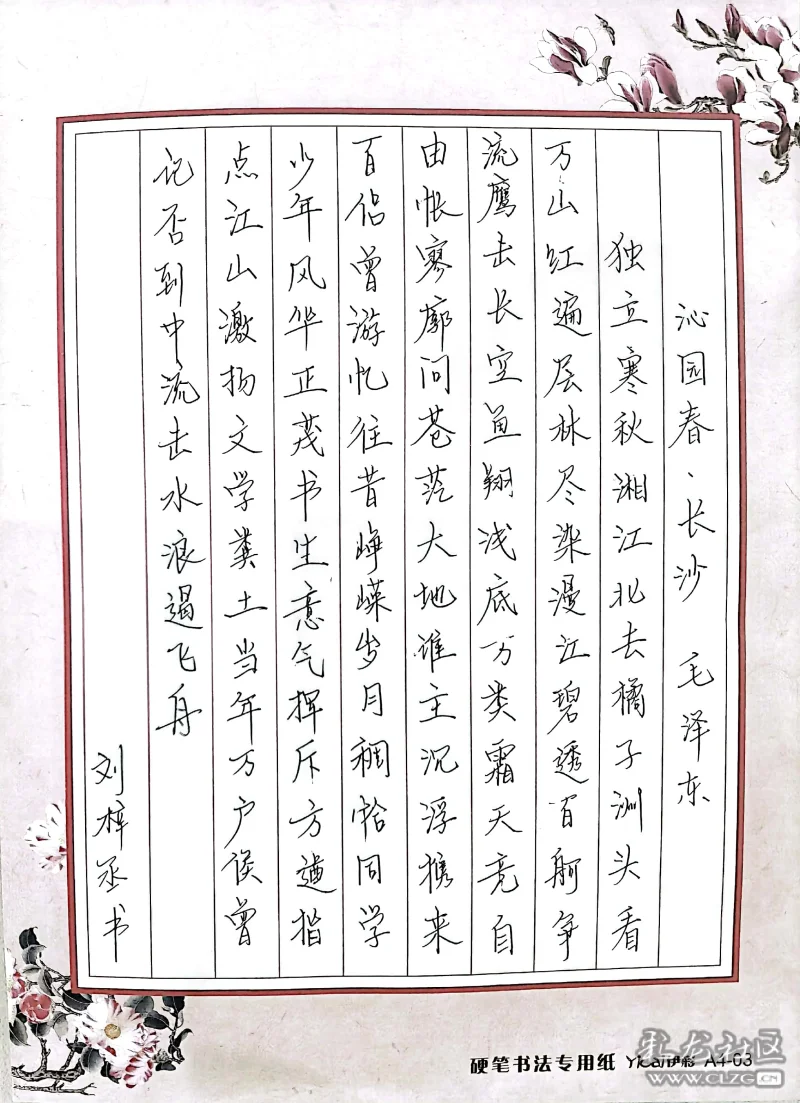 沁园春·长沙 毛泽东
独立寒秋湘江北去橘子洲头看
万山红遍层林尽染漫江碧透百舸争
流鹰击长空鱼翔浅底万类霜天竞自
由怅寥廓问苍茫大地谁主沉浮携来
百侣曾游忆往昔峥嵘岁月稠恰同学
少年风华正茂书生意气挥斥方遒指
点江山激扬文字粪土当年万户侯曾
记否到中流击水浪遏飞舟
刘梓丞书
硬笔书法专用纸 Yicai伊彩 A4-03
龙社区
WWW.CLZG.CN